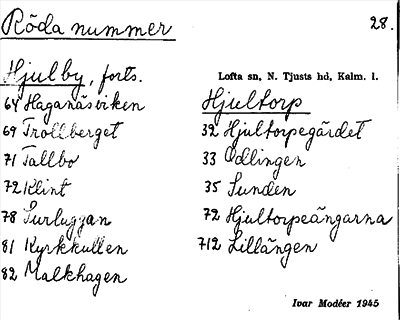 Röda nummer 28.
Hjulby, forts.
64 Haganäsviken
69 Trollberget
71 Tallbo
72 Klint
78 Turluggan
81 Kyrkkullen
82 Malkhagen
Lofta sn, N. Tjusts hd, Kalm. l.
Hjultorp
32 Hjultorpegärdet
33 Odlingen
35 Sunden
72 Hjultorpeängarna
712 Lillängen
Ivar Modéer 1945